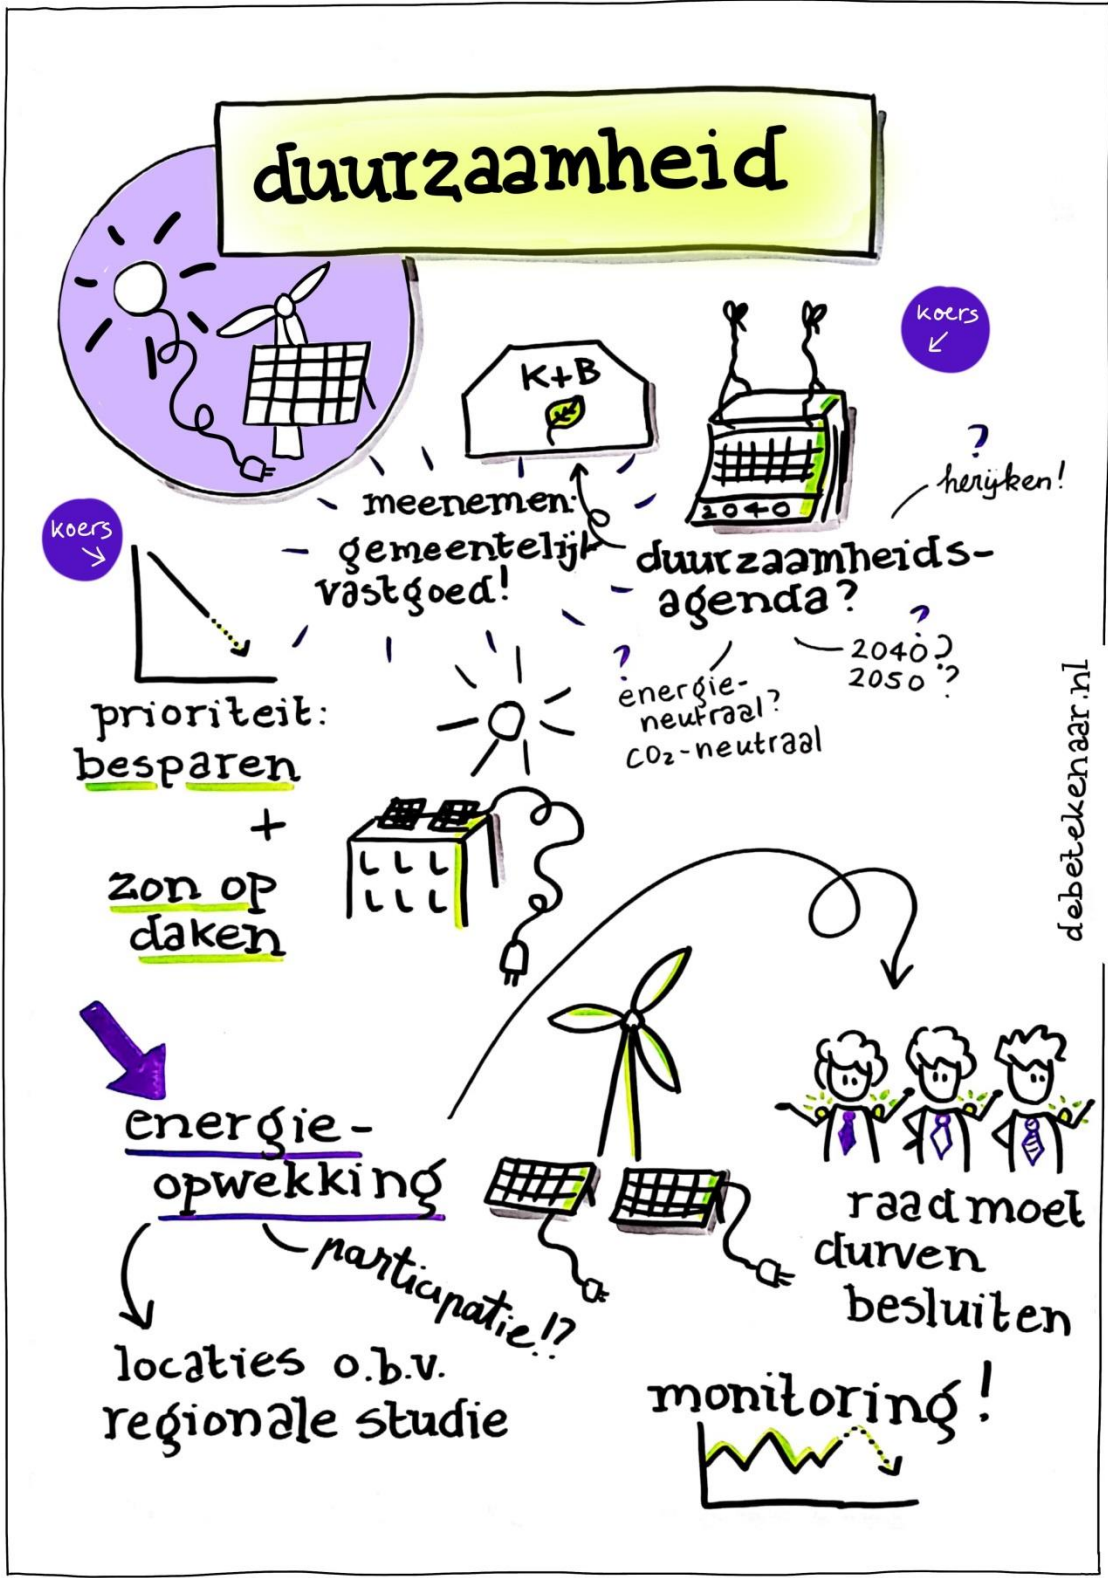 duurzaamheid
koers
K+B
2040
?
herijken!
meenemen
gemeentelijk
vastgoed!
duurzaamheids-
agenda?
koers
?
energie-
neutraal?
CO₂-neutraal
?
2040?
2050?
prioriteit:
besparen
+
zon op
daken
debetekenaar.nl
energie-
opwekking
participatie!?
locaties o.b.v.
regionale studie
raad moet
durven
besluiten
monitoring!